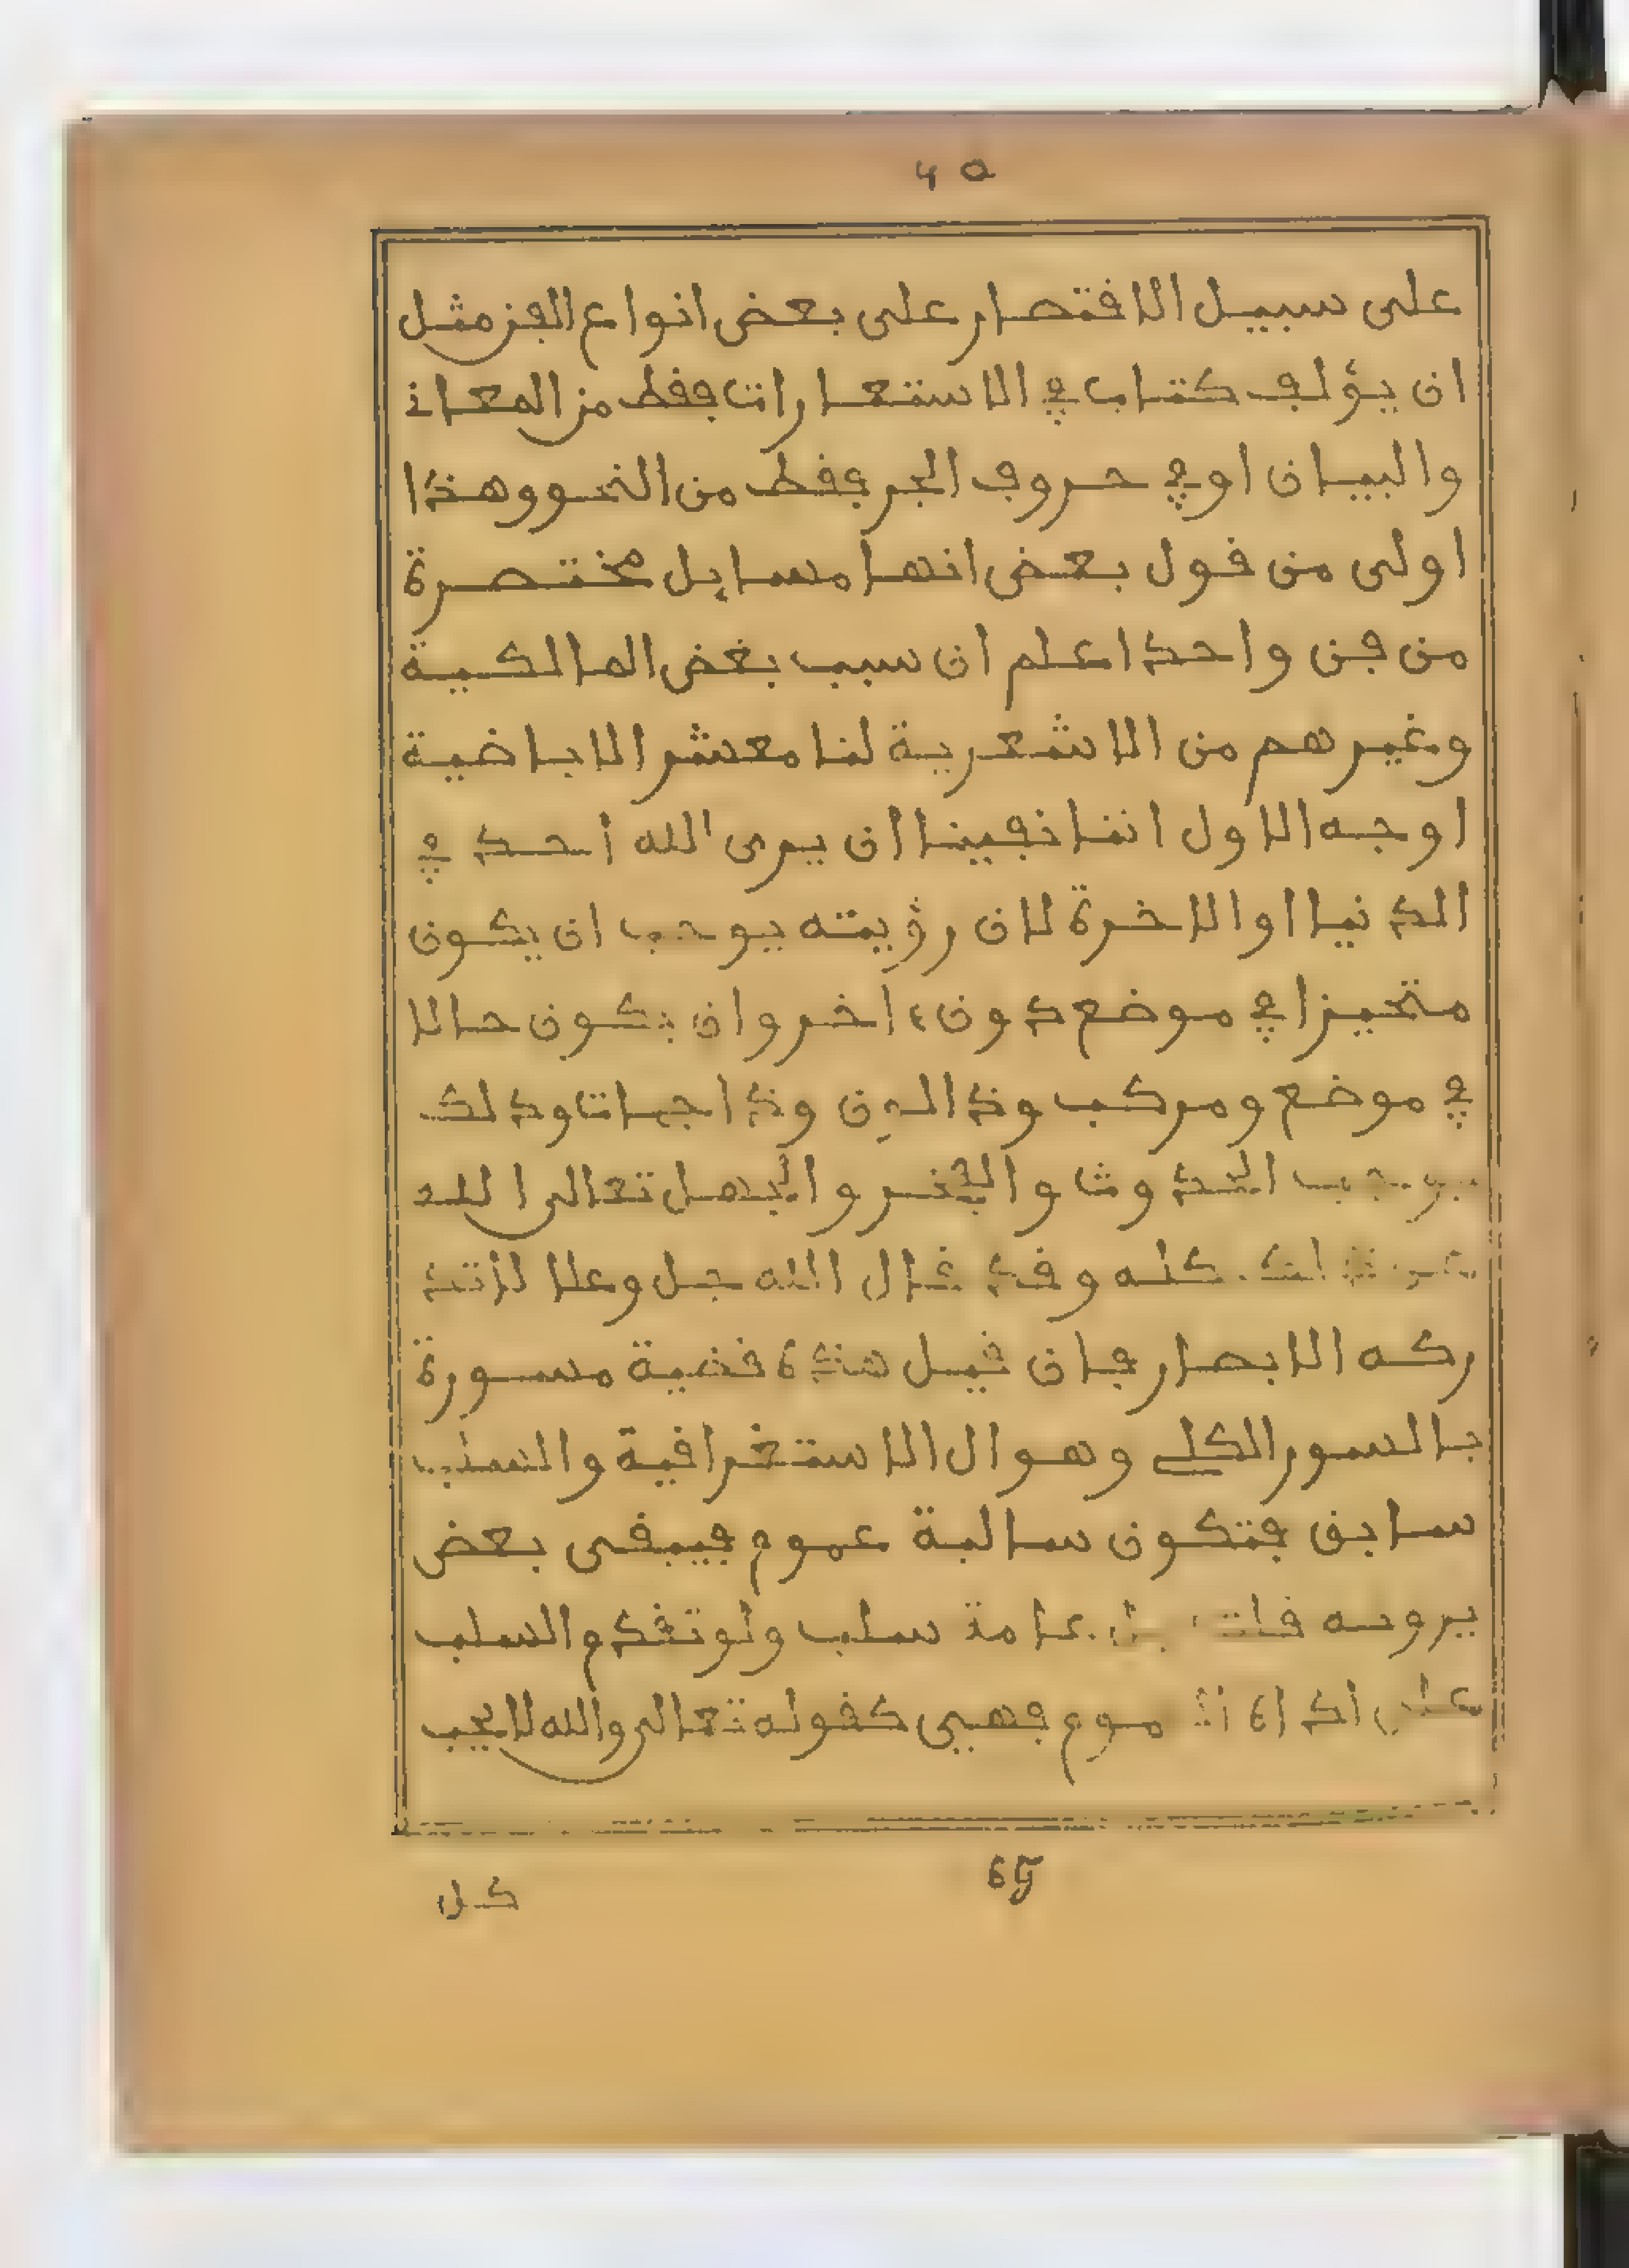 ٤٥
على سبيل الاقتصار على بعض انواع الفن مثل
ان يؤلف كتاب في الاستعارات فقط من المعاني
والبيان او في حروف الجر فقط من النحو وهذا
اولى من قول بعض انها مسايل مختصرة
من فن واحد اعلم ان سبب بغض المالكية
وغيرهم من الاشعرية لنا معشر الاباضية
اوجه الاول اننا نفينا ان يرى الله أحد في
الدنيا او الاخرة لان رؤيته يوجب ان يكون
متحيزا في موضع دون ءاخر وان يكون حالا
في موضع ومركب وذا لون وذا جهات وذلك
يوجب الحدوث والعجز والجهل تعالى الله
عن ذلك كله وقد قال الله جل وعلا لا تد
ركه الابصار فان قيل هذه قضية مسورة
بالسور الكلي وهو ال الاستغراقية والسلب
سابق فتكون سالبة عموم فيبقى بعض
يرونه قلت بل عامة سلب ولو تقدم السلب
على اداة العموم فهي كقوله تعالى والله لا يحب
65
كل